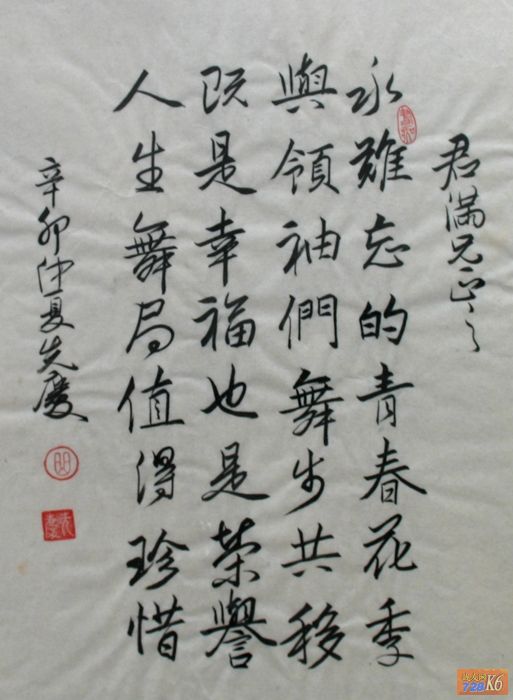 君满兄正之
永難忘的青春花季
與領袖們舞步共移
既是幸福也是榮譽
人生舞局值得珍惜
辛卯仲夏先慶
K6